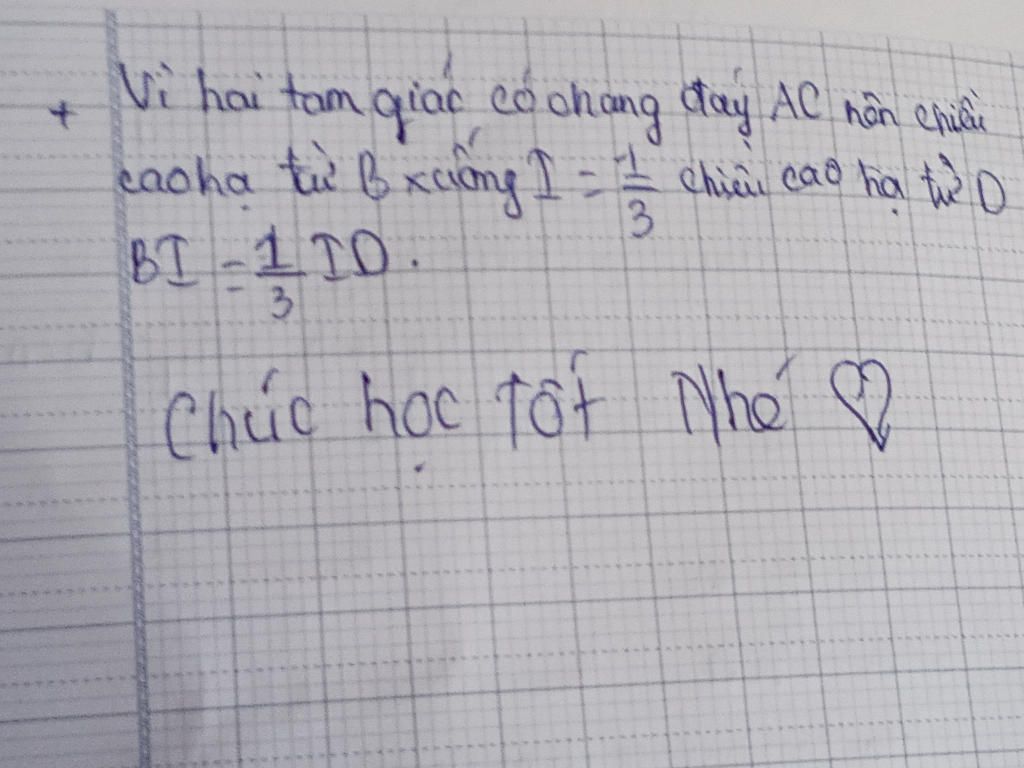 + Vì hai tam giác có chang đáy AC nên chiều
cao hạ từ B xuống I = 1/3 chiều cao hạ từ D
BI = 1/3 ID.
Chúc học tốt Nhé ♡